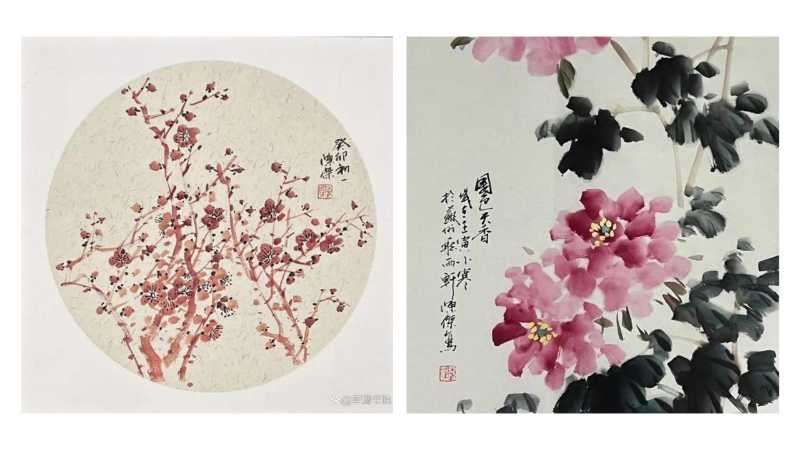 癸卯初一
陳傑
國色天香
歲在壬寅小寒
於蘇州聽雨軒 陳傑寫